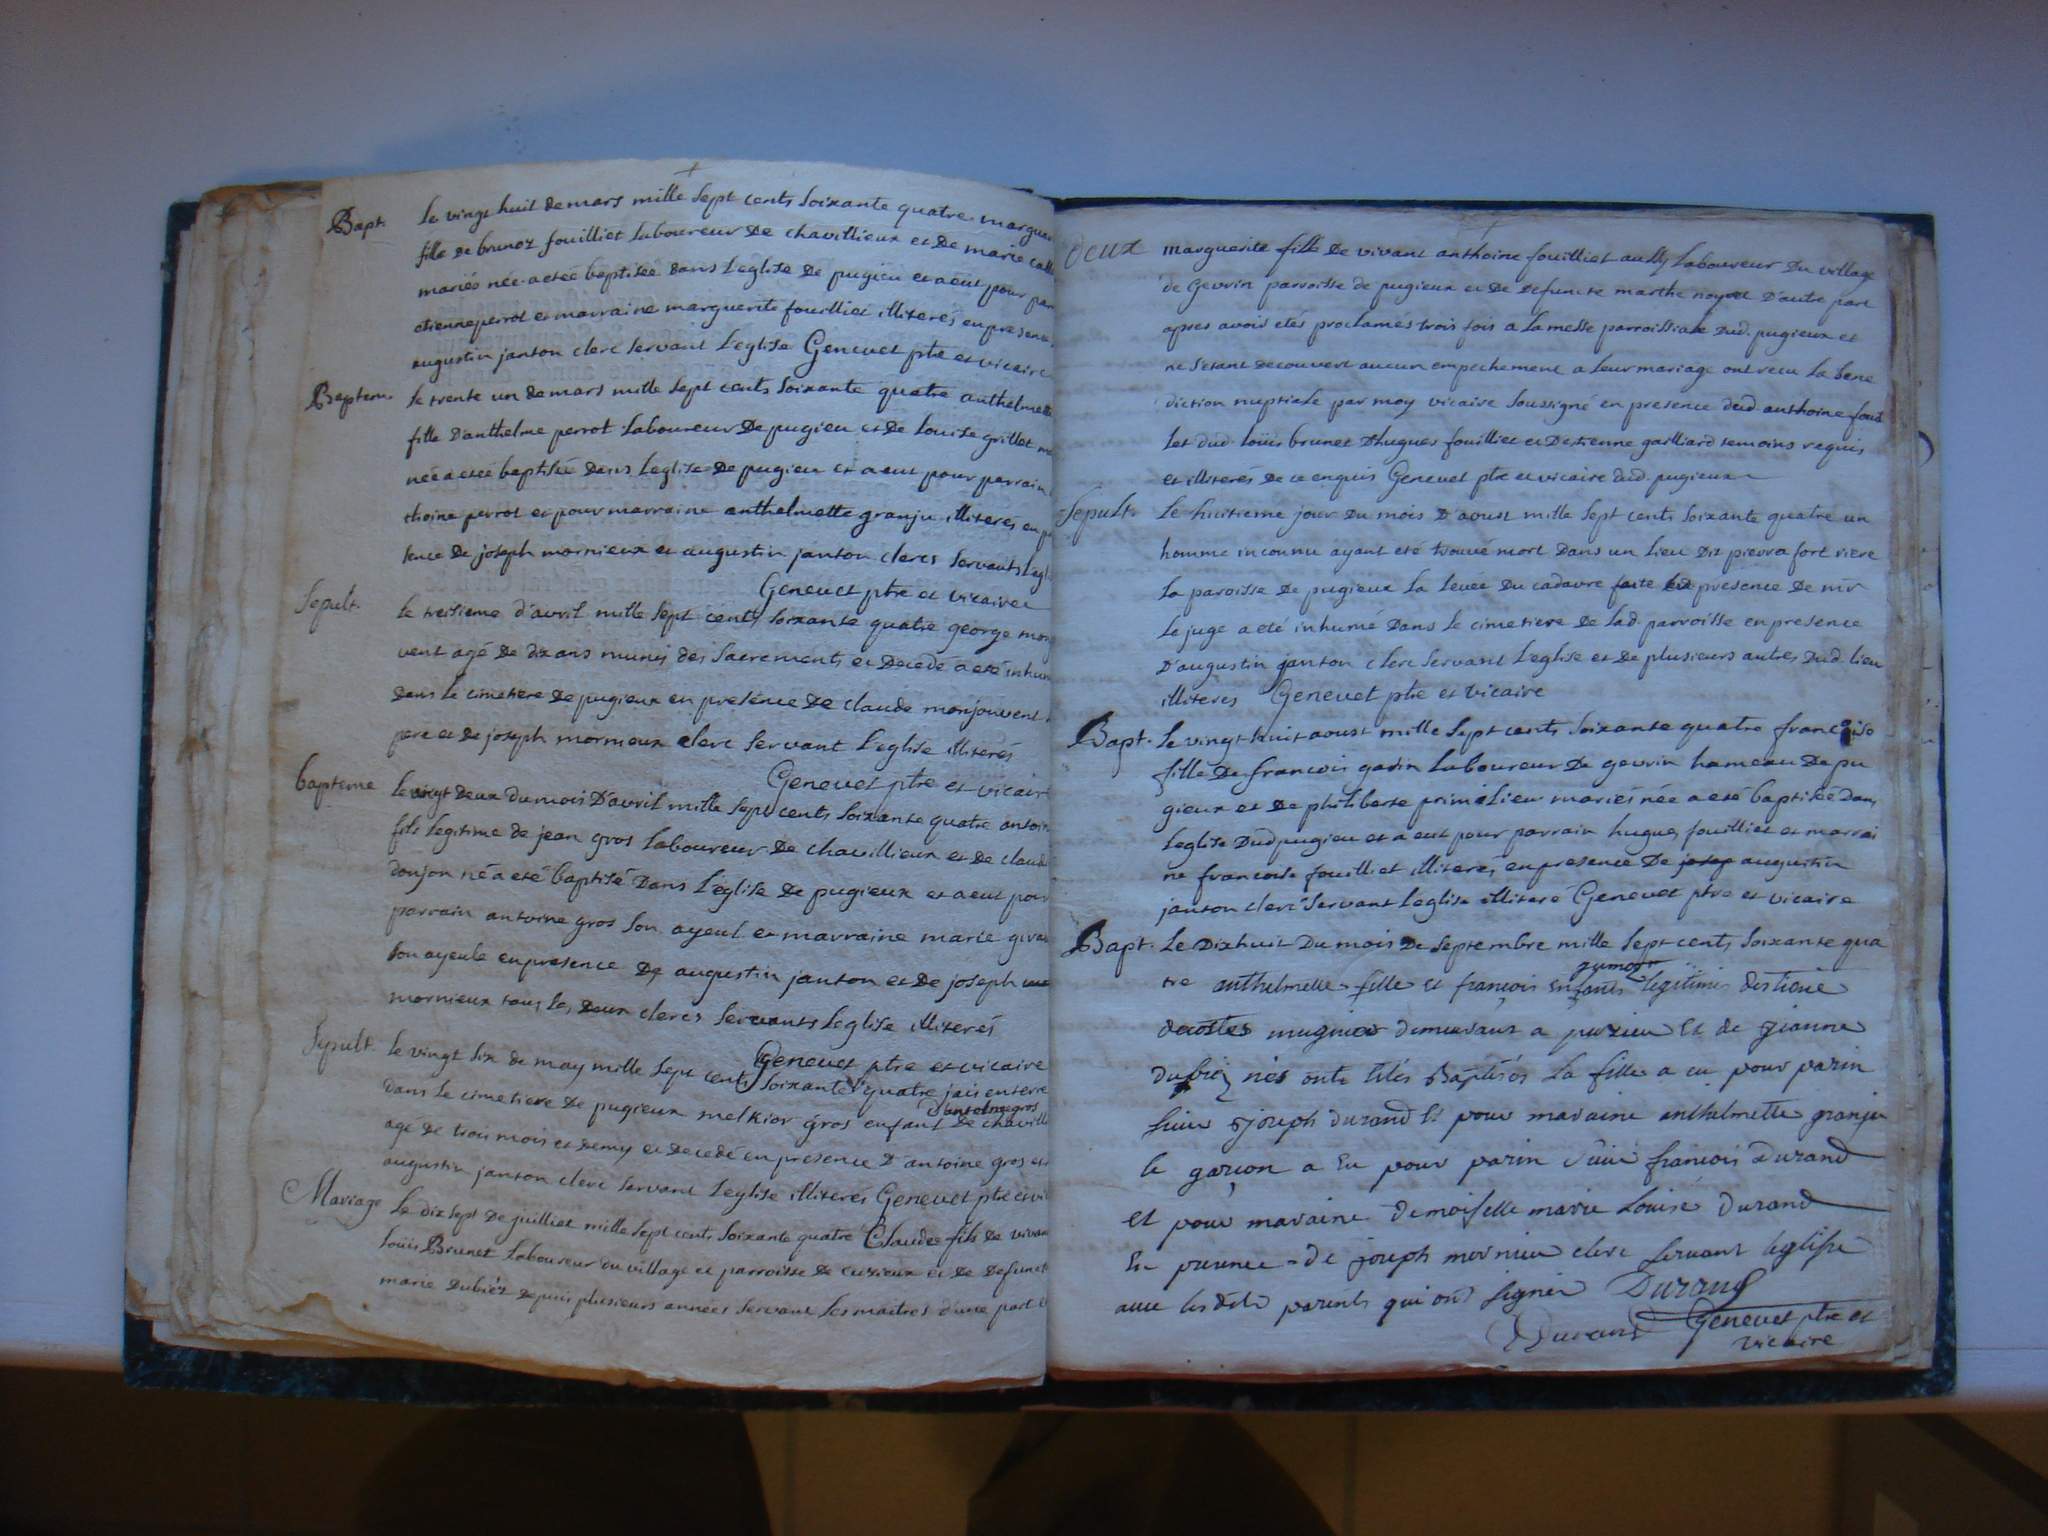 Bapt. Le vingt huit de mars mille sept cents soixante quatre margue
fille de brunoz fouilliet laboureur de chavillieux et de marie
mariés née a eteé baptisée dans leglise de pugieu et a eut pour par
etienne perrot et marraine marguerite fouilliet illiterés en presence
augustin janton clerc servant l'eglise Genevet ptre et vicaire
Baptem. le trente un de mars mille sept cents soixante quatre anthelmette
fille d'anthelme perrot laboureur de pugieu et de louise grillet
née a eteé baptisée dans leglise de pugieu et a eut pour parrain
thoine perrot et pour marraine anthelmette granju illiterés en
sence de joseph mornieux et augustin janton clercs servants l'egl
Genevet ptre et vicaire
Sepult. le treisieme d'avril mille sept cents soixante quatre george mon
vent agé de dix ans munis des sacrements et decedé a eté inhum
dans le cimetiere de pugieux en presence de claude monjouvent
pere et de joseph mornieux clerc servant l'eglise illiterés
Genevet ptre et vicair
bapteme le vingt deux du mois d'avril mille sept cents soixante quatre antoin
fils legitime de jean gros laboureur de chavillieux et de claud
doujon né a eté baptisé dans l'eglise de pugieux et a eut pour
parrain antoine gros son ayeul et marraine marie
son ayeule en presence de augustin janton et de joseph
mornieux tous les deux clercs servants leglise illiterés
Genevet ptre et vicaire
Sepult. le vingt six de may mille sept cents soixante quatre jai enterre
d'antelme gros
dans le cimetiere de pugieux melkior gros enfant de chavill
agé de trois mois et demy et decedé en presence d'antoine gros et
augustin janton clerc servant leglise illiterés Genevet ptre et vi
Mariage Le dix sept de juilliet mille sept cents soixante quatre Claude fils de vivan
loüis Brunet laboureur du village et parroisse de cuzieux et de defunct
marie dubiéz depuis plusieurs années servant les maitres d'une part
deux marguerite fille de vivant anthoine fouilliet aussy laboureur du village
de Gevrin parroisse de pugieux et de defuncte marthe noyret d'autre part
apres avoir etés proclamés trois fois a la messe parroissiale dud. pugieux et
ne s'etant decouvert aucun empechement a leur mariage ont recu la bene
diction nuptiale par moy vicaire soussigné en presence dud anthoine fouil
let dud. loüis brunet d'hugues fouilliet et d'estienne gailliard temoins requis
et illiterés de ce enquis Genevet ptre et vicaire dud. pugieux
Sepult. Le huitieme jour du mois d'aoust mille sept cents soixante quatre un
homme inconnu ayant eté trouvé mort dans un lieu dit pierra fort riere
la paroisse de pugieux la levée du cadavre faite presence de mr
le juge a eté inhumé dans le cimetiere de lad. parroisse en presence
d'augustin janton clerc servant leglise et de plusieurs autres dud. lieu
illiteres Genevet ptre et vicaire
Bapt. le vingt huit aoust mille sept cents soixante quatre francoise
fille de francois gadin laboureur de gevrin hameau de pu
gieux et de philiberte primelieu mariés née a eté baptisée dans
leglise dud pugieu et a eut pour parrain hugues fouilliet et marrai
ne francoise fouilliet illiterés en presence de josep augustin
janton clerc servant leglise illiteré Genevet ptre et vicaire
Bapt. Le dixhuit du mois de septembre mille sept cents soixante qua
jumos
tre anthelmette fille et françois enfants legitimes destiene
decostes mugnier demeurant a puzieu et de jeanne
dubiez nés ont étés Baptisés la fille a eu pour parin
sieur joseph durand et pour maraine anthelmette granju
le garçon a eu pour parin sieur francois Durand
et pour maraine demoiselle marie Louise durand
En presence de joseph mornieu clerc servant leglise
avec les dits parents qui ont signés Durand
Durand Genevet ptre et
vicaire